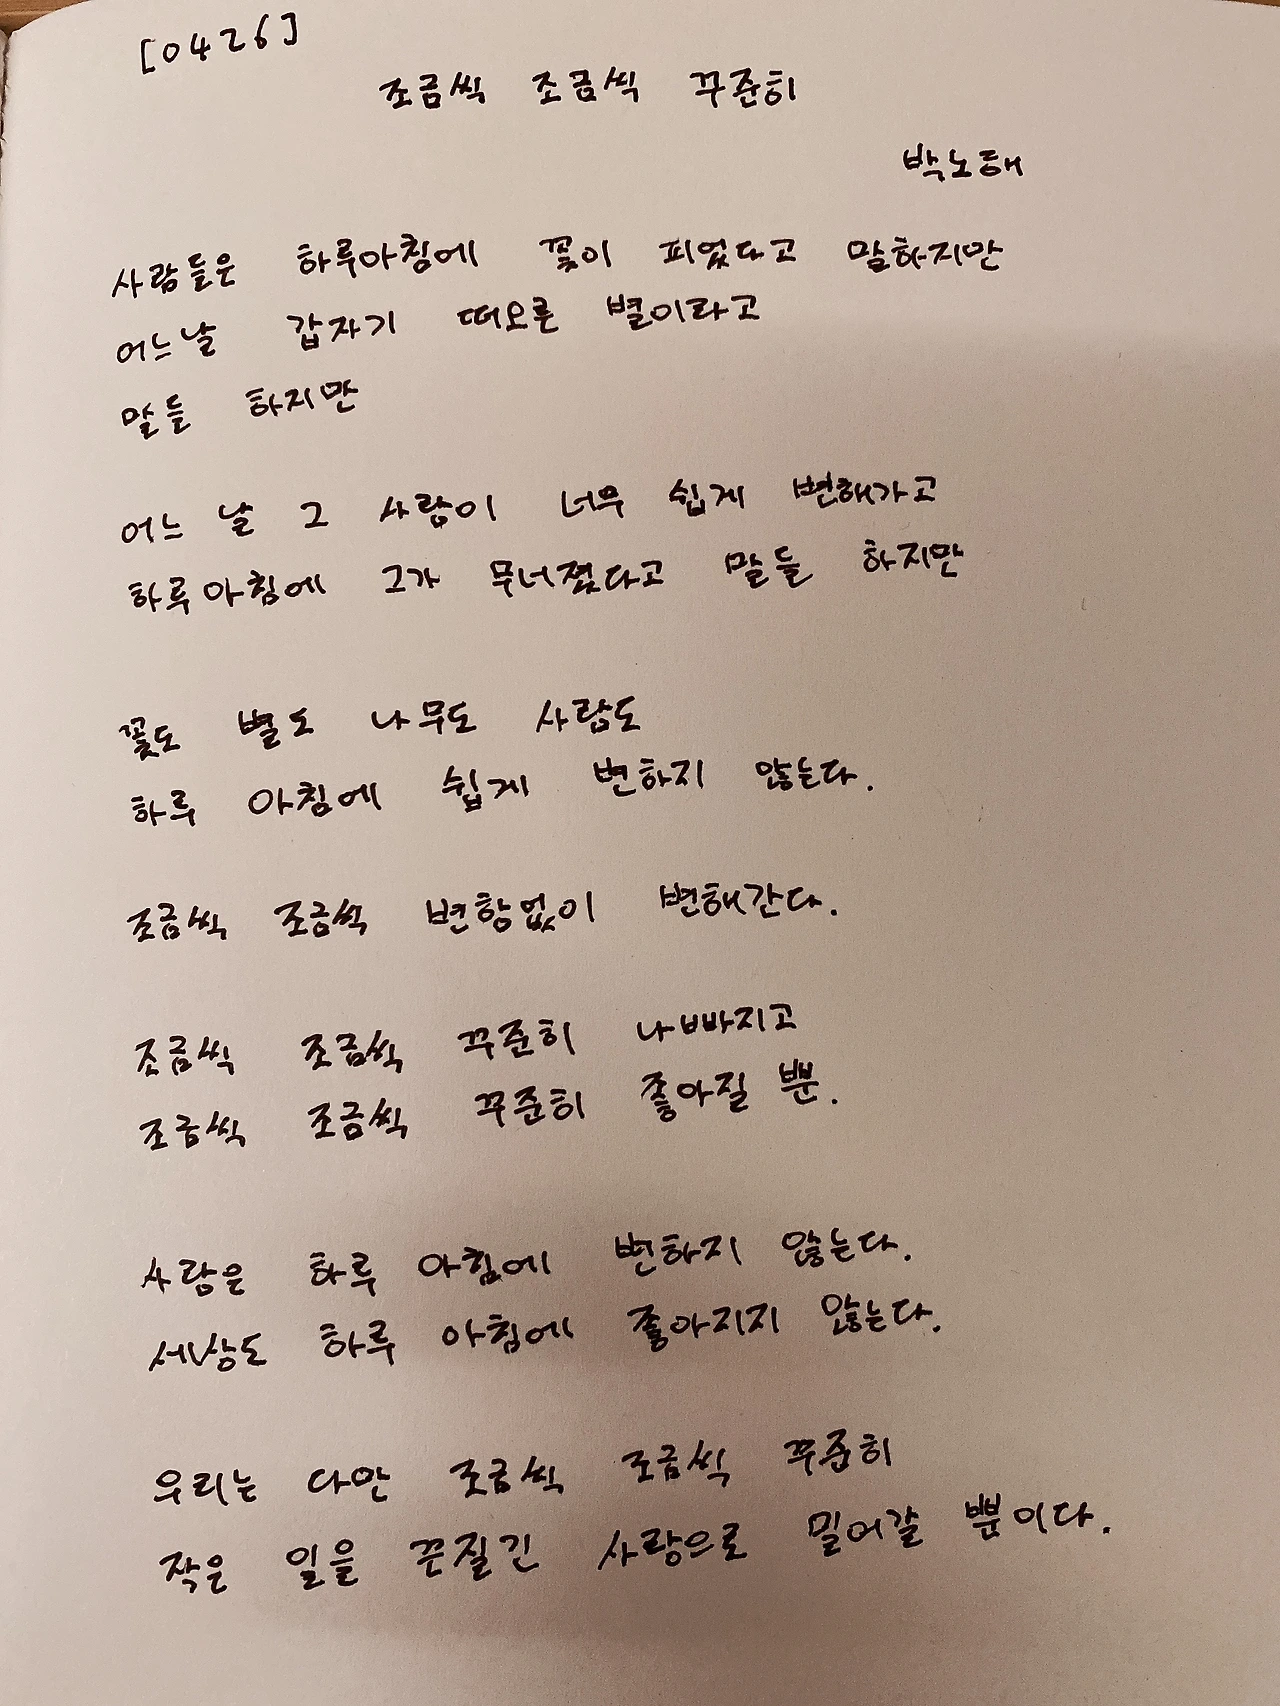 [0426]
조금씩 조금씩 꾸준히
박노해
사람들은 하루아침에 꽃이 피었다고 말하지만
어느날 갑자기 떠오른 별이라고
말들 하지만
어느 날 그 사람이 너무 쉽게 변해가고
하루아침에 그가 무너졌다고 말들 하지만
꽃도 별도 나무도 사람도
하루 아침에 쉽게 변하지 않는다.
조금씩 조금씩 변함없이 변해간다.
조금씩 조금씩 꾸준히 나빠지고
조금씩 조금씩 꾸준히 좋아질 뿐.
사람은 하루 아침에 변하지 않는다.
세상도 하루 아침에 좋아지지 않는다.
우리는 다만 조금씩 조금씩 꾸준히
작은 일을 끈질긴 사랑으로 밀어갈 뿐이다.